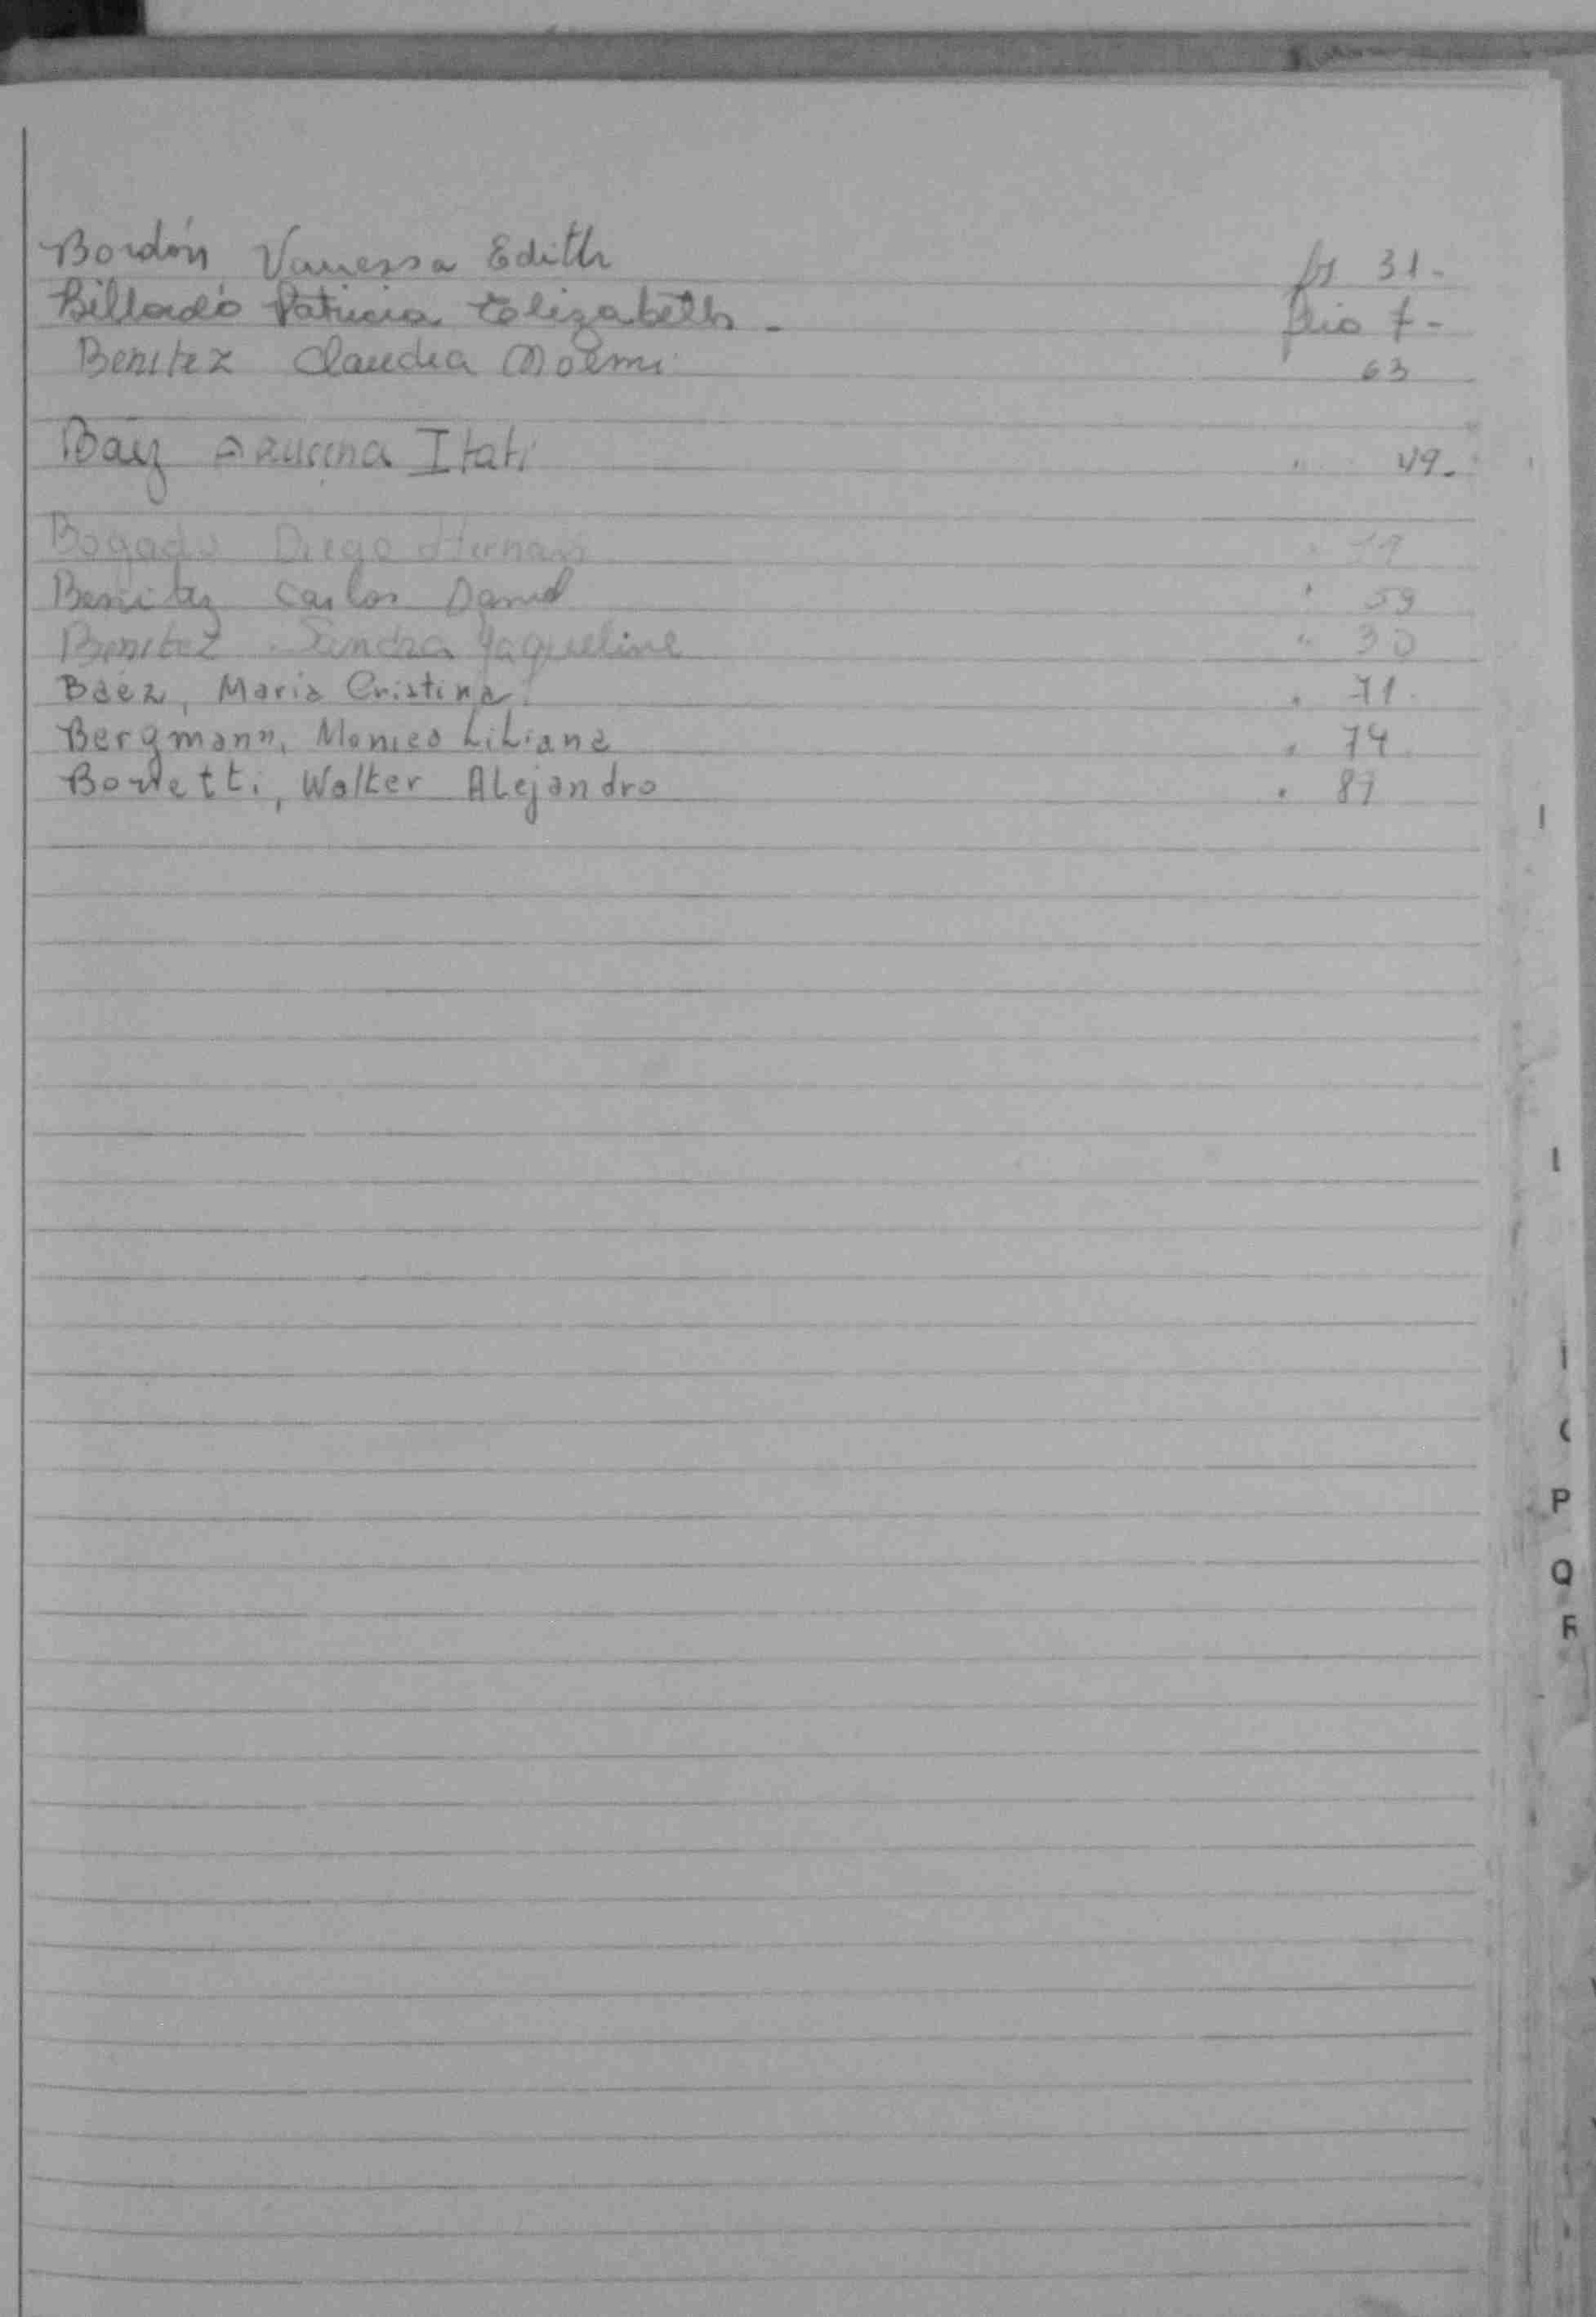 Bordón Vanessa Edith fs 31.
Billordo Patricia Elizabeth - flio 7-
Benitez Claudia Noemi 63
Baez Azucena Itatí " 49.
Bogado Diego Hernan "
Benitez Carlos Daniel " 59
Benitez Sandra Yaqueline " 30
Báez, María Cristina " 71
Bergmann, Monica Liliana " 74
Walter Alejandro " 87
P
Q
R